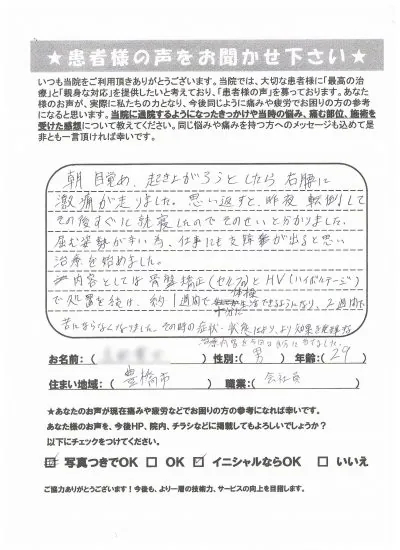 ★患者様の声をお聞かせ下さい★
いつも当院をご利用頂きありがとうございます。当院では、大切な患者様に「最高の治
療」と「親身な対応」を提供したいと考えており、「患者様の声」を募っております。あなた
様のお声が、実際に私たちの力となり、今後同じように痛みや疲労でお困りの方の参考
になると思います。当院に通院するようになったきっかけや当時の悩み、痛む部位、施術を
受けた感想について教えてください。同じ悩みや痛みを持つ方へのメッセージも込めて是
非とも一言頂ければ幸いです。
朝目覚め、起き上がろうとしたら右腰に
激痛が走りました。思い返すと、昨夜転倒して
その後すぐに就寝したのでそのせいと分かりました。
屈む姿勢が辛い為、仕事にも支障が出ると思い
治療を始めました。
内容としては骨盤矯正(セルフ)とHV(ハイボルテージ)
で処置を続け、約1週間で
生活できるようになり、2週間で
苦にならなくなりました。その時の症状・状態により、より効果を
お名前:( ) 性別:( 男 ) 年齢:( 29 )
住まい地域:( 豊橋市 ) 職業:( 会社員 )
★あなたのお声が現在痛みや疲労などでお困りの方の参考になれば幸いです。
あなた様のお声を、今後HP、院内、チラシなどに掲載してもよろしいでしょうか?
以下にチェックをつけてください。
☑ 写真つきでOK □ OK ☑ イニシャルならOK □ いいえ
ご協力ありがとうございます!今後も、より一層の技術力、サービスの向上を目指します。